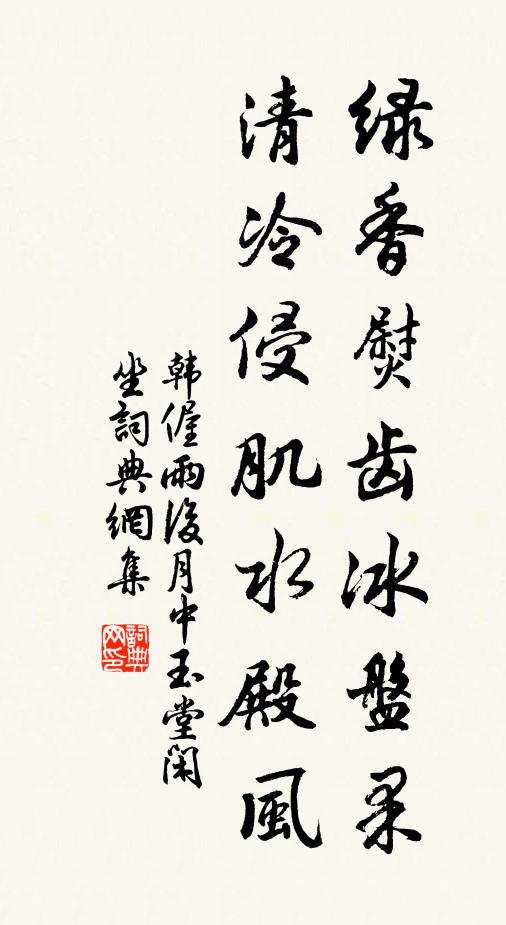 绿香熨齿冰盤果
清冷侵肌水殿風
韩偓雨後月中玉堂闲
坐詞典網集
詞典网印